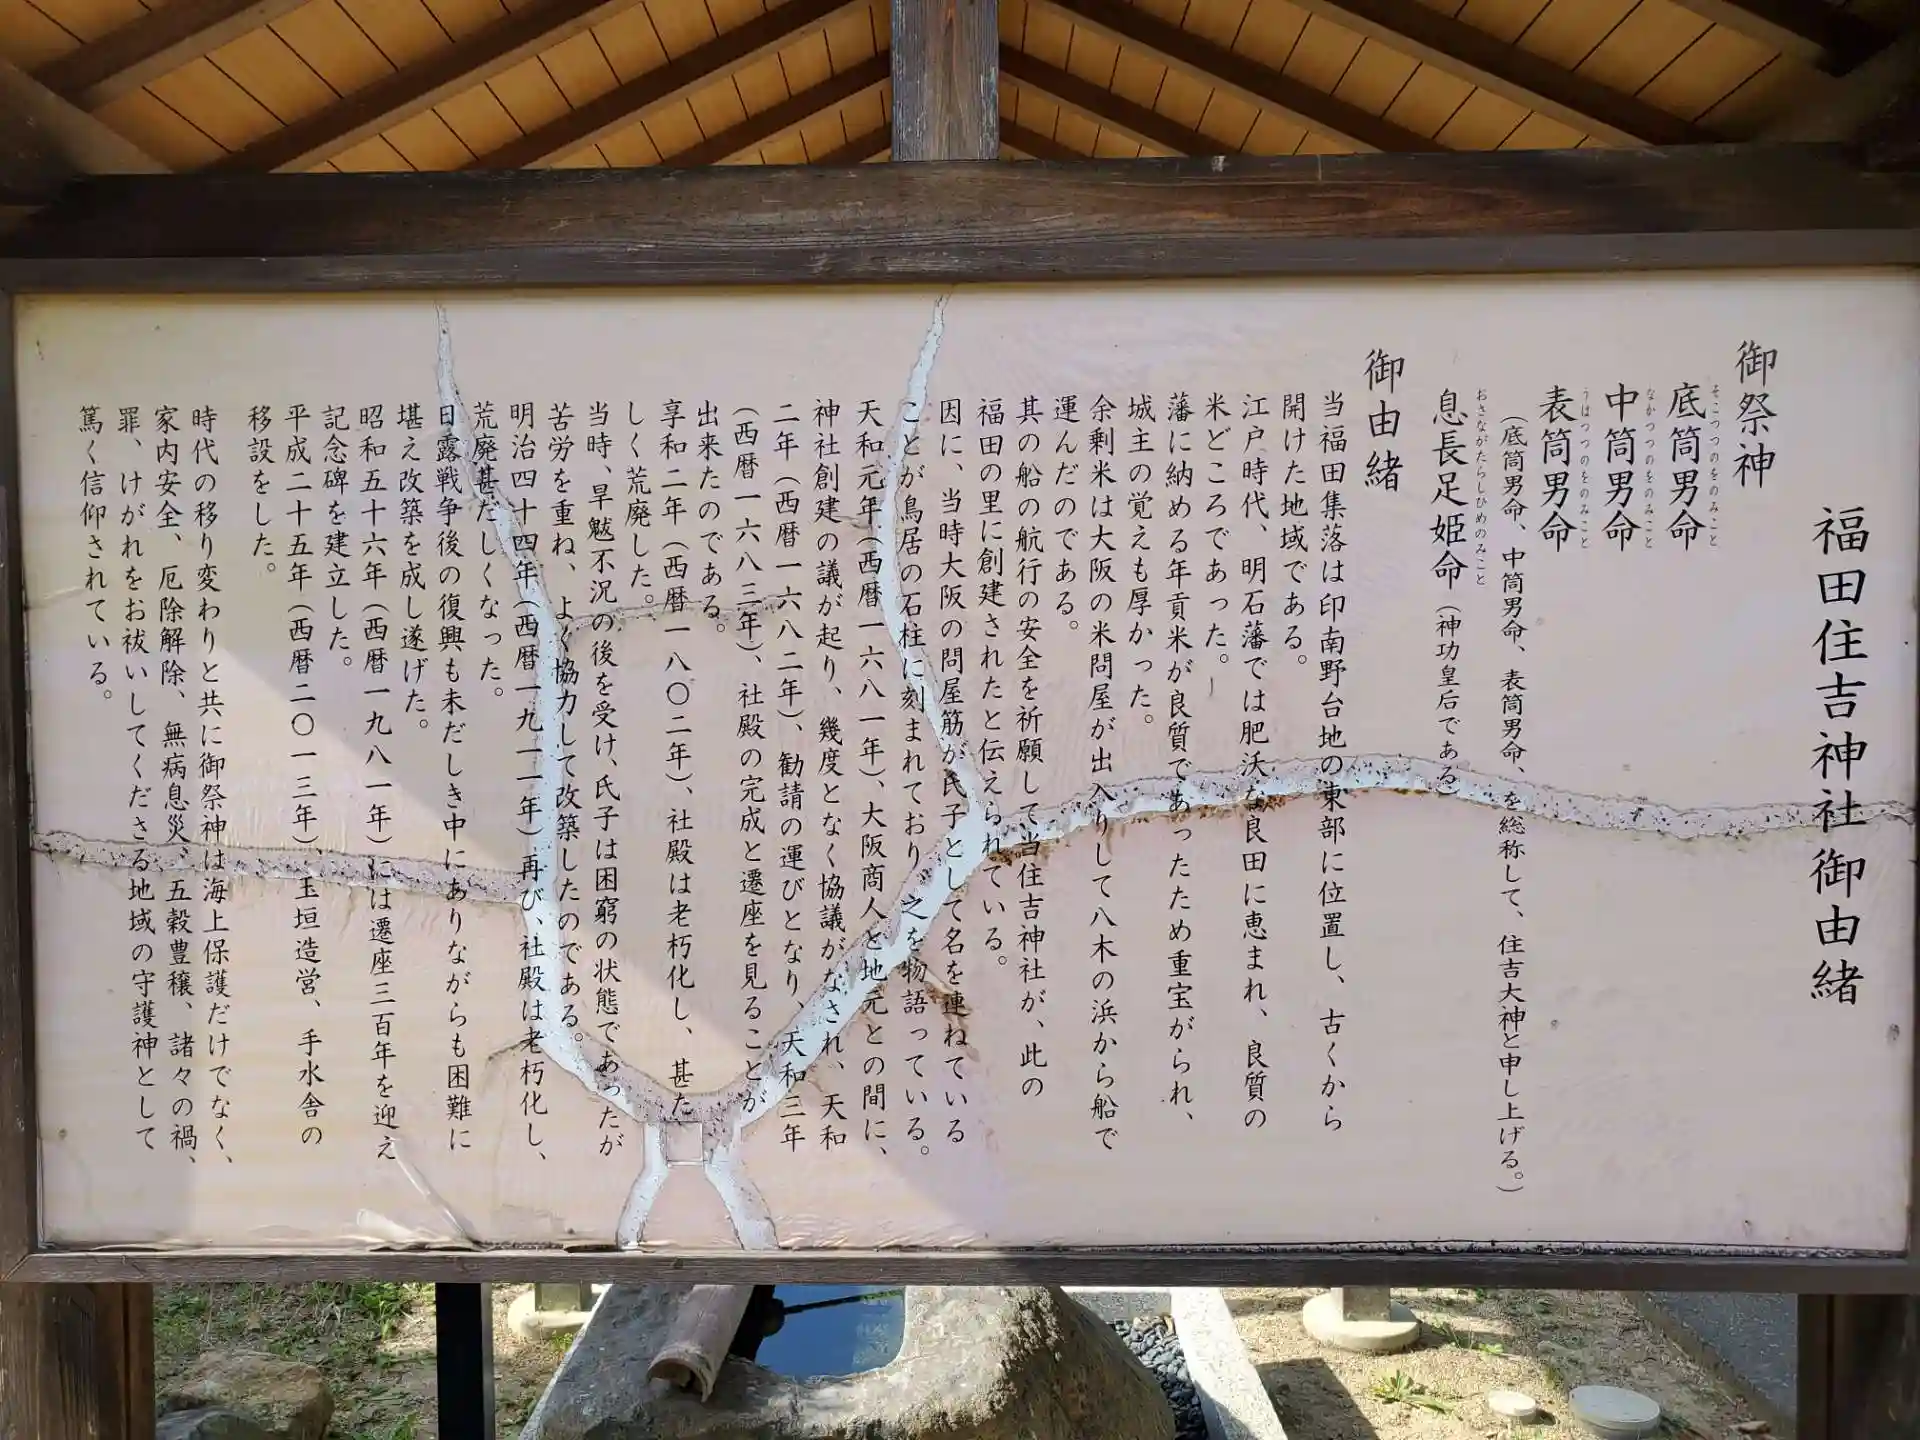 福田住吉神社御由緒
御祭神
底筒男命
そこつつのをのみこと
中筒男命
なかつつのをのみこと
表筒男命
うはつつのをのみこと
（底筒男命、中筒男命、表筒男命、を総称して、住吉大神と申し上げる。）
息長足姫命（神功皇后である）
おきながたらしひめのみこと
御由緒
当福田集落は印南野台地の東部に位置し、古くから
開けた地域である。
江戸時代、明石藩では肥沃な良田に恵まれ、良質の
米どころであった。
藩に納める年貢米が良質であったため重宝がられ、
城主の覚えも厚かった。
余剰米は大阪の米問屋が出入りして八木の浜から船で
運んだのである。
其の船の航行の安全を祈願して当住吉神社が、此の
福田の里に創建されたと伝えられている。
因に、当時大阪の問屋筋が氏子として名を連ねている
ことが鳥居の石柱に刻まれており、之を物語っている。
天和元年（西暦一六八一年）、大阪商人と地元との間に、
神社創建の議が起り、幾度となく協議がなされ、天和
二年（西暦一六八二年）、勧請の運びとなり、天和三年
（西暦一六八三年）、社殿の完成と遷座を見ることが
出来たのである。
享和二年（西暦一八〇二年）、社殿は老朽化し、甚だ
しく荒廃した。
当時、旱魃不況の後を受け、氏子は困窮の状態であったが
苦労を重ね、よく協力して改築したのである。
明治四十四年（西暦一九一一年）再び、社殿は老朽化し、
荒廃甚だしくなった。
日露戦争後の復興も未だしき中にありながらも困難に
堪え改築を成し遂げた。
昭和五十六年（西暦一九八一年）には遷座三百年を迎え
記念碑を建立した。
平成二十五年（西暦二〇一三年）、玉垣造営、手水舎の
移設をした。
時代の移り変わりと共に御祭神は海上保護だけでなく、
家内安全、厄除解除、無病息災、五穀豊穣、諸々の禍、
罪、けがれをお祓いしてくださる地域の守護神として
篤く信仰されている。